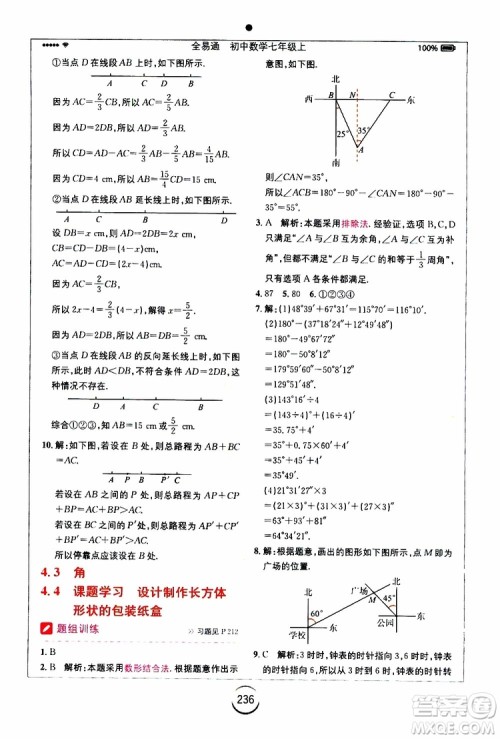 全易通 初中数学七年级上
100%
①当点 D 在线段 AB 上时,如下图所示.
A D C B
因为 AC=2/3 CB,所以 AC=2/5 AB.
因为 AD=2DB,所以 AD=2/3 AB.
所以 CD=AD-AC=2/3 AB-2/5 AB=4/15 AB.
因为 CD=4 cm,所以 AB=15 cm.
②当点 D 在线段 AB 延长线上时,如下图所示.
设 DB=x cm,则 AD=2x cm,AB=x cm,
CB=CD-DB=(4-x)cm,
因为 AC=2/3 CB,所以 CB=3/5 AB.
所以 x-4=
所以 AB=5/2 cm.
③当点 D 在 AB 的反向延长线上时,如下图所示,此时 AD<DB,不可能有 AD=2DB,故这种情况不存在.
综合①②③,知 AB=15 cm 或 5/2 cm.
10. 解:如下图所示,若设在 B 处,则总路程为 AB+BC=AC.
若设在 AB 之间的 P 处,则总路程为 AP+CP+BP=AC+BP>AC.
若设在 BC 之间的 P′ 处,则总路程为 AP′+BP′+CP′=AC+BP′>AC.
所以,停靠点应该设在 B 处.
4.3 角
4.4 课题学习 设计制作长方体
形状的包装纸盒
题组训练
>习题见 P212
1. B
2. B 解析:本题采用数形结合法.根据题意作出示
意图,如下图所示.
北
西 B N C 东
25° 35°
A
南
则∠CAN=35°,
所以∠BAC=25°+35°=60°.
3. A 解析:本题采用排除法.经验证,选项 B,C,D
只满足“∠A 与∠B 互为余角,∠A 与∠C 互为补
角”,但都不能满足“∠B 与∠C 的和等于1/3周角”.
只有选项 A 各条件都满足.
4. 87 5. 80 6. ①③④
7. 解:(1)48°39′+67°31′=115°70′=116°10′.
(2)180°-(37°54′+12°49′48″)
=180°-49°103′48″
=180°-50°43′48″
=129°16′12″.
(3)143°16′÷4
=(143÷4)°+(16÷4)′
=35.75°+4′
=35°+45′+4′
=35°49′.
(4)20°51′27″×3
=(20×3)°+(51×3)′+(27×3)″
=60°+153′+81″
=62°34′21″.
8. 解:根据题意,画出的图形如图所示,点 M 即为
广场的位置.
北 广场 北
60° M 45°
学校 东 公园 东
9. C 解析:3 时时,钟表的时针指向 3,4 时时,钟
表的时针指向 4,故从 3 时到 4 时,钟表的时针
236